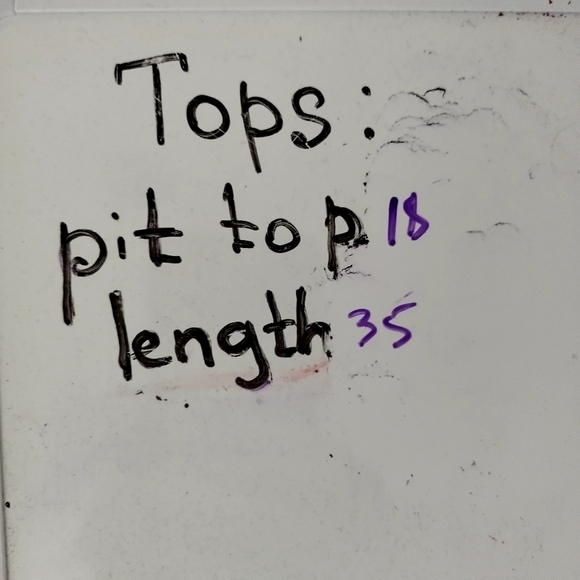 Tops:
pit to p 18
length 35